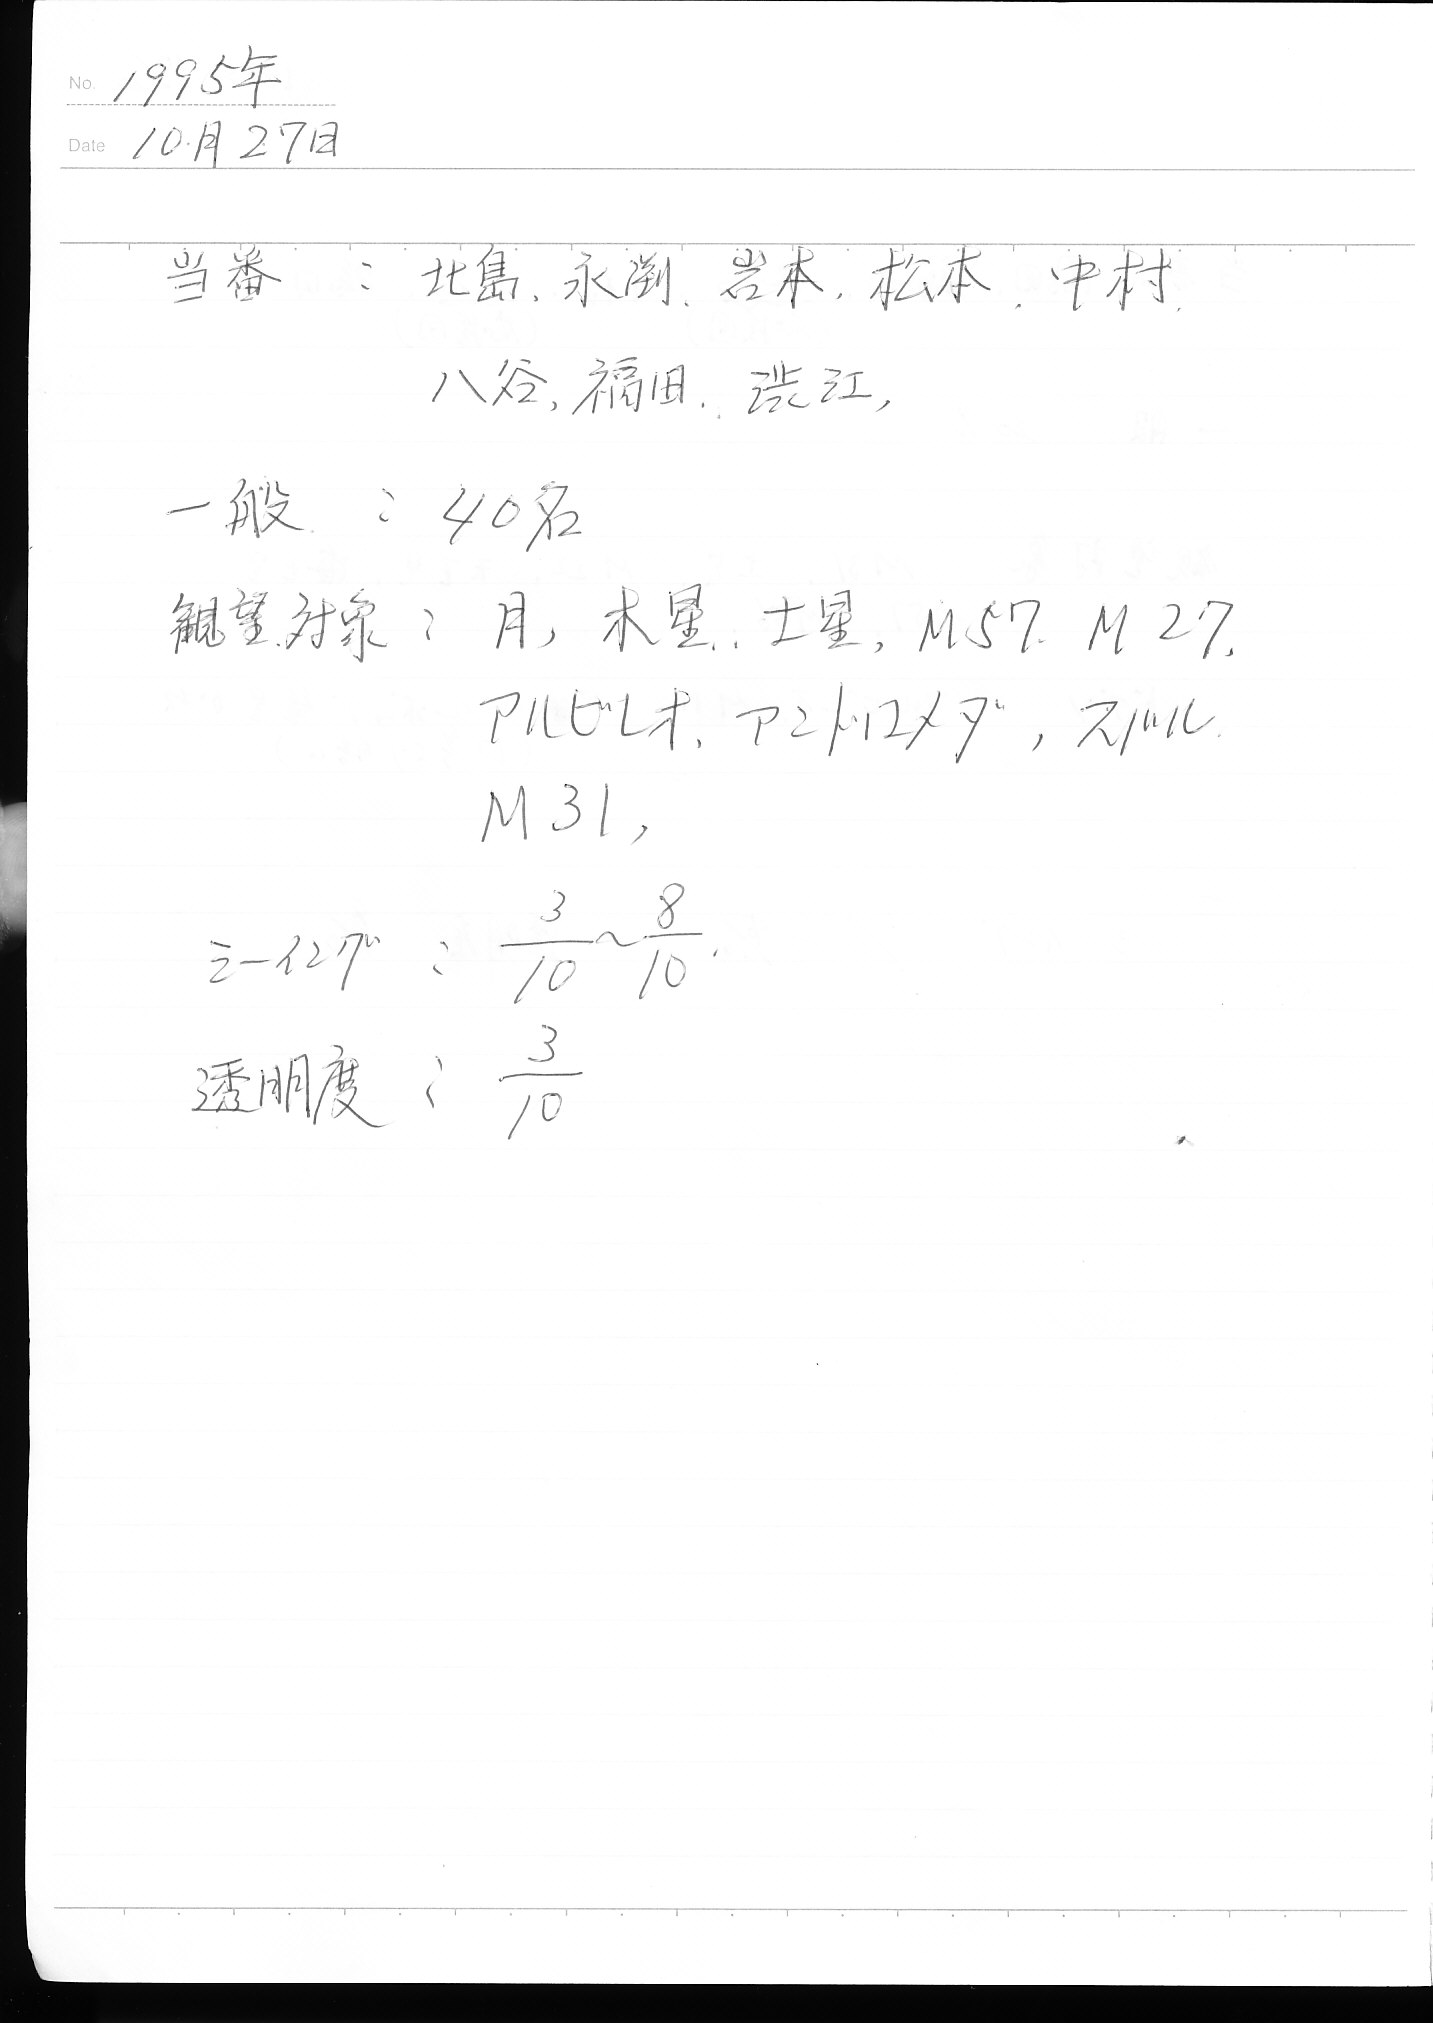 No. 1995年
Date 10月27日
当番 : 北島、永渕、岩本、松本、中村、
八谷、福田、渋江,
一般 : 40名
観望対象 : 月, 木星、土星, M57. M27,
アルビレオ、アンドロメダ, スバル.
M31,
シーイング : 3/10~8/10.
透明度 : 3/10